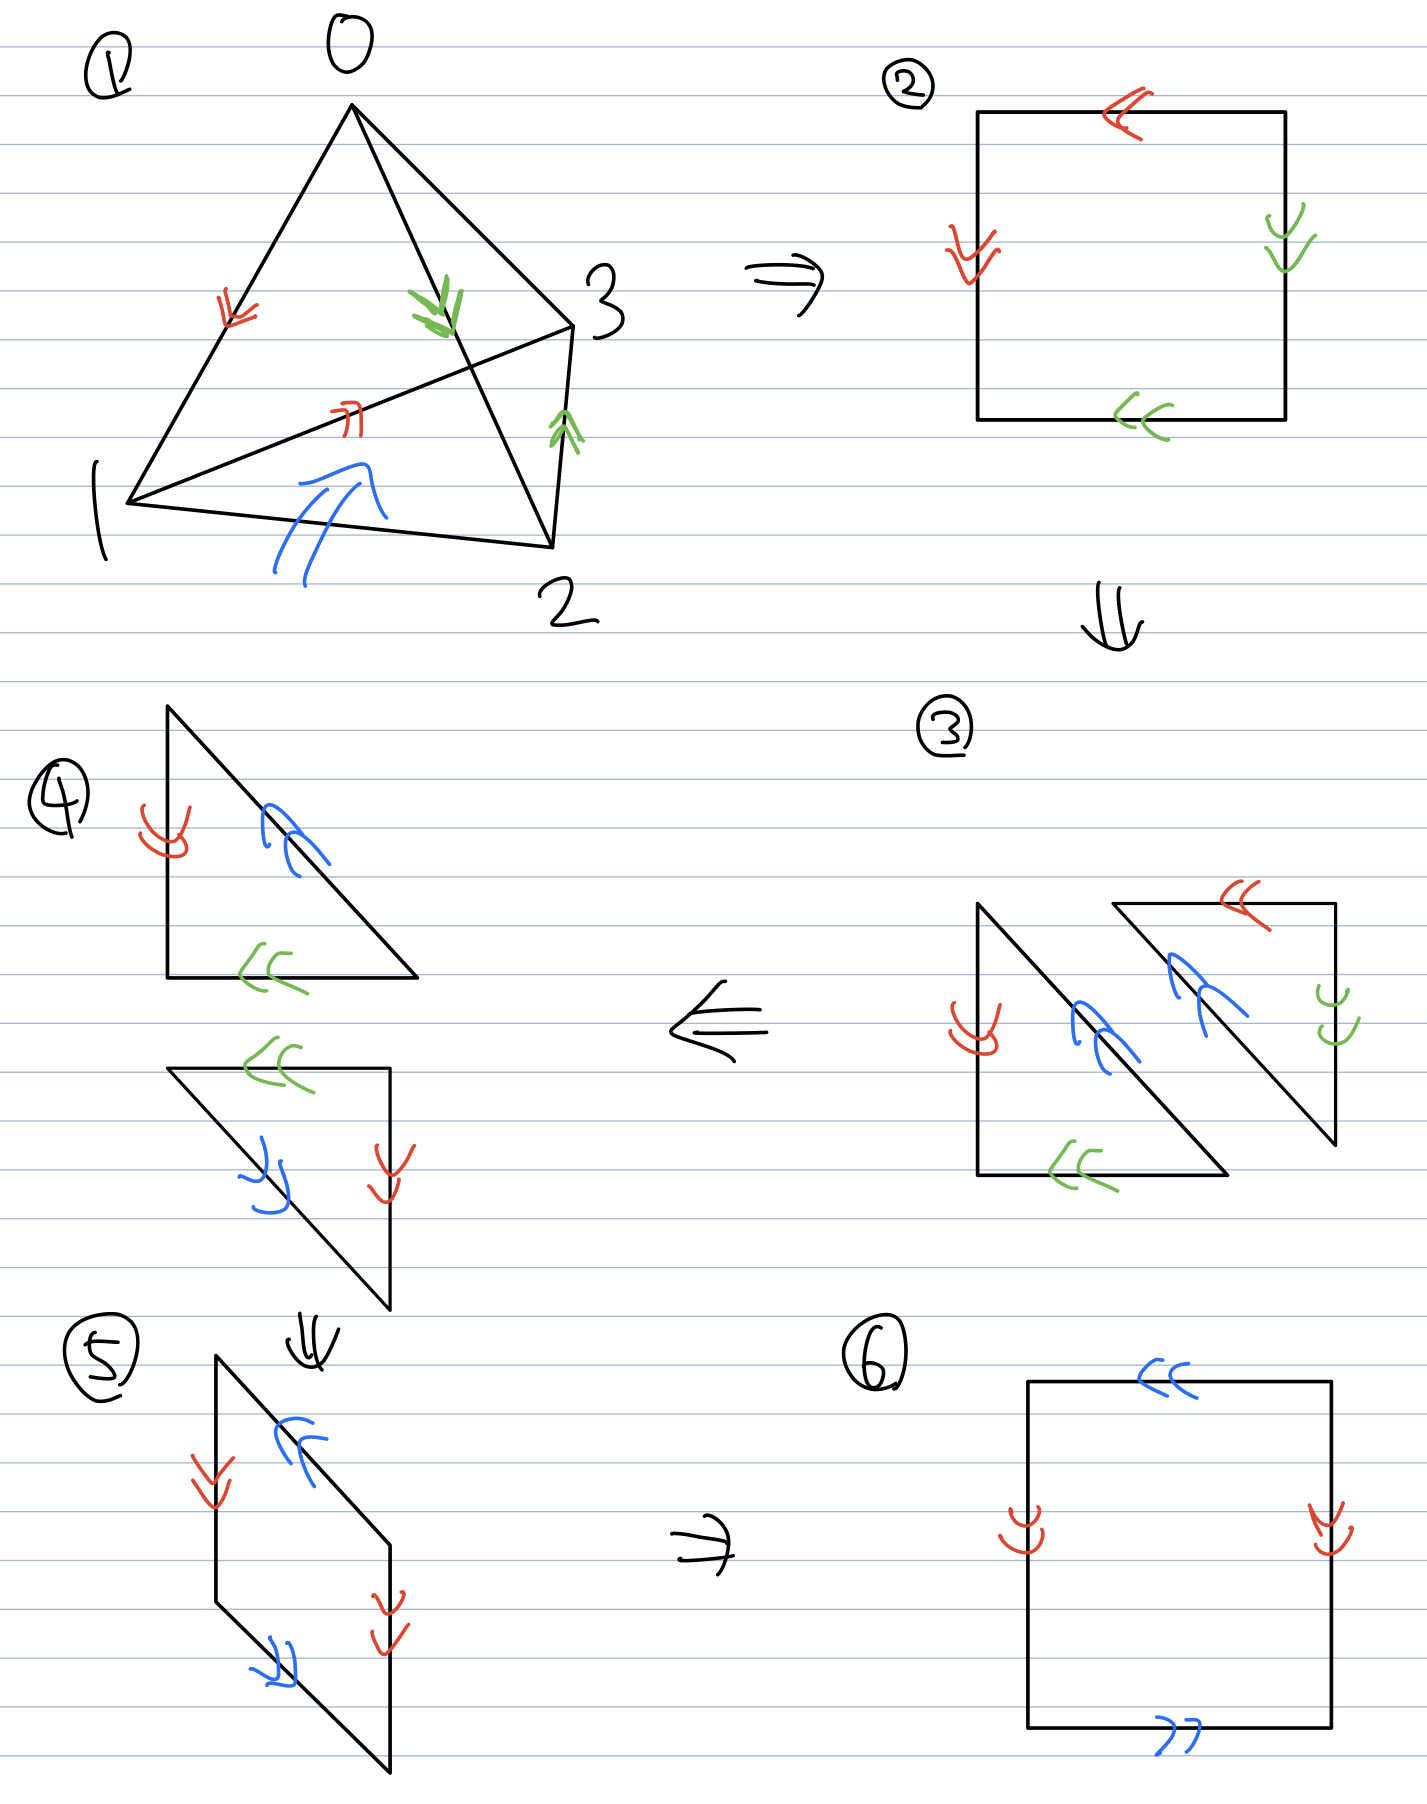 ① 0 ②
3
1
2
③
④
⑤ ⑥